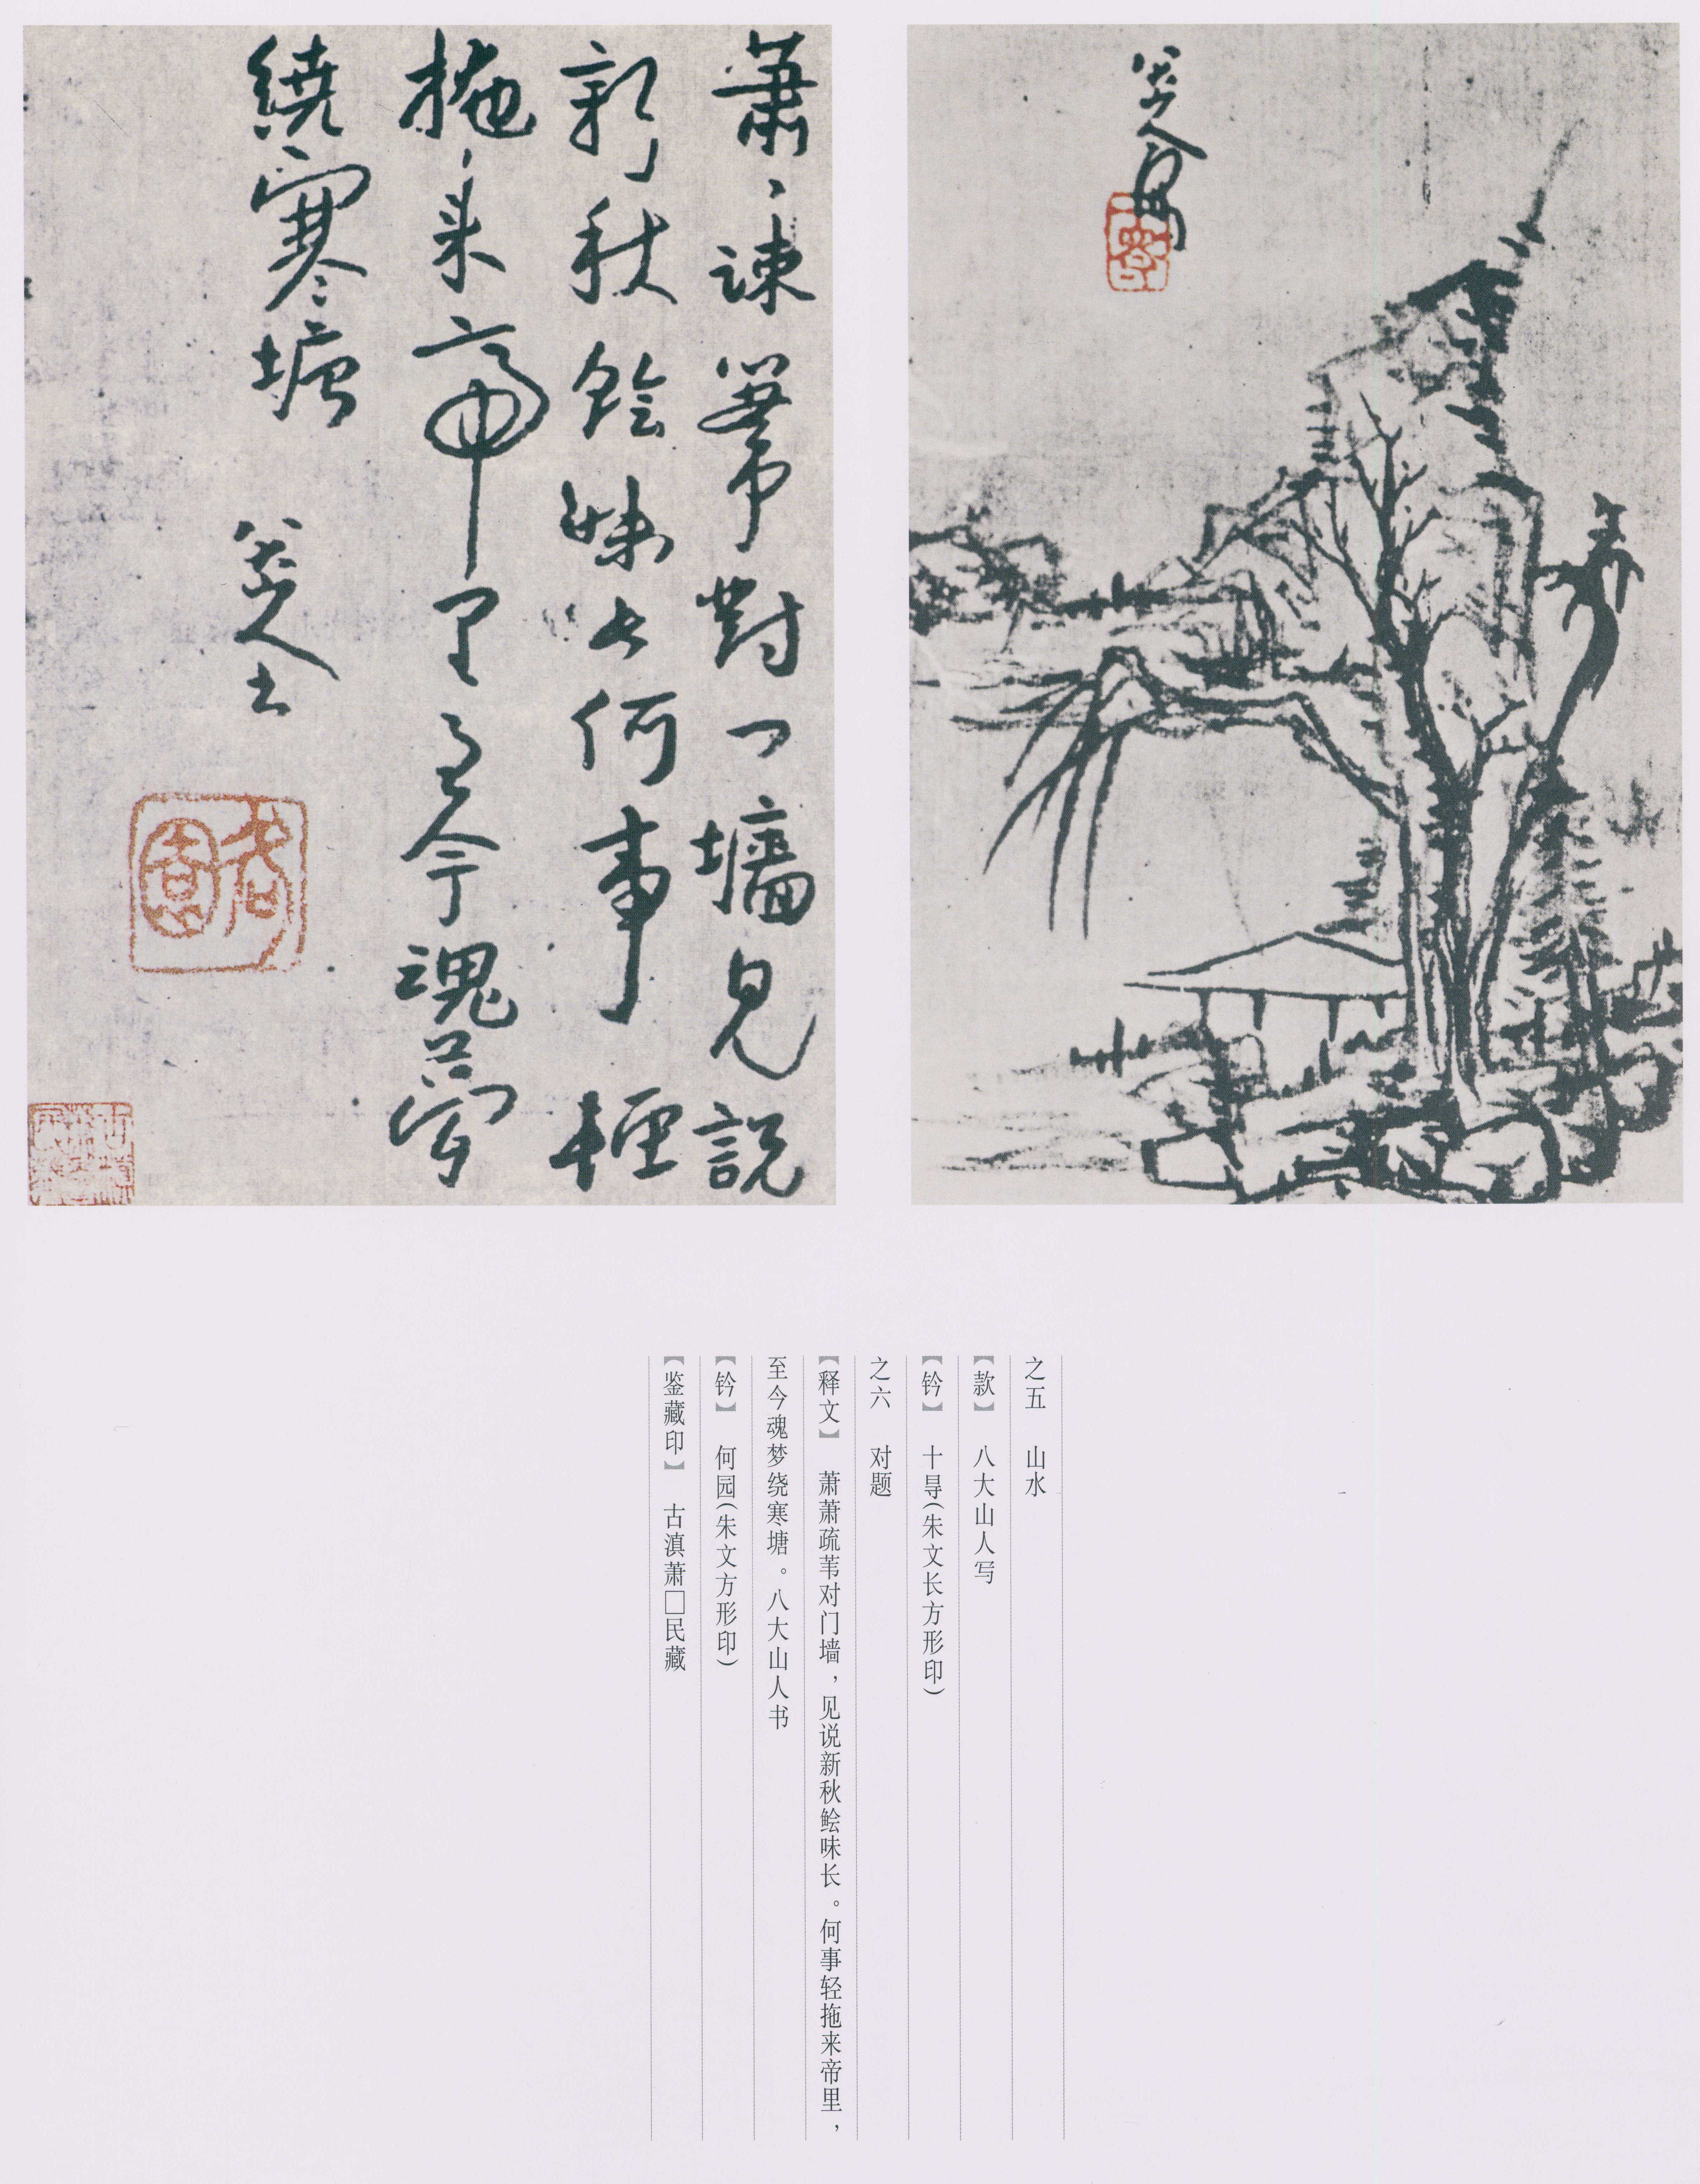 八大山人寫
蕭〻疎葦對門墻見說
新秋鱠味長何事輕
拖來帝里至今魂夢
繞寒塘 八大山人書
何園
之五 山水
【款】 八大山人写
【钤】 十㝵(朱文长方形印)
之六 对题
【释文】 萧萧疏苇对门墙，见说新秋鲙味长。何事轻拖来帝里，
至今魂梦绕寒塘。八大山人书
【钤】 何园(朱文方形印)
【鉴藏印】 古滇萧□民藏